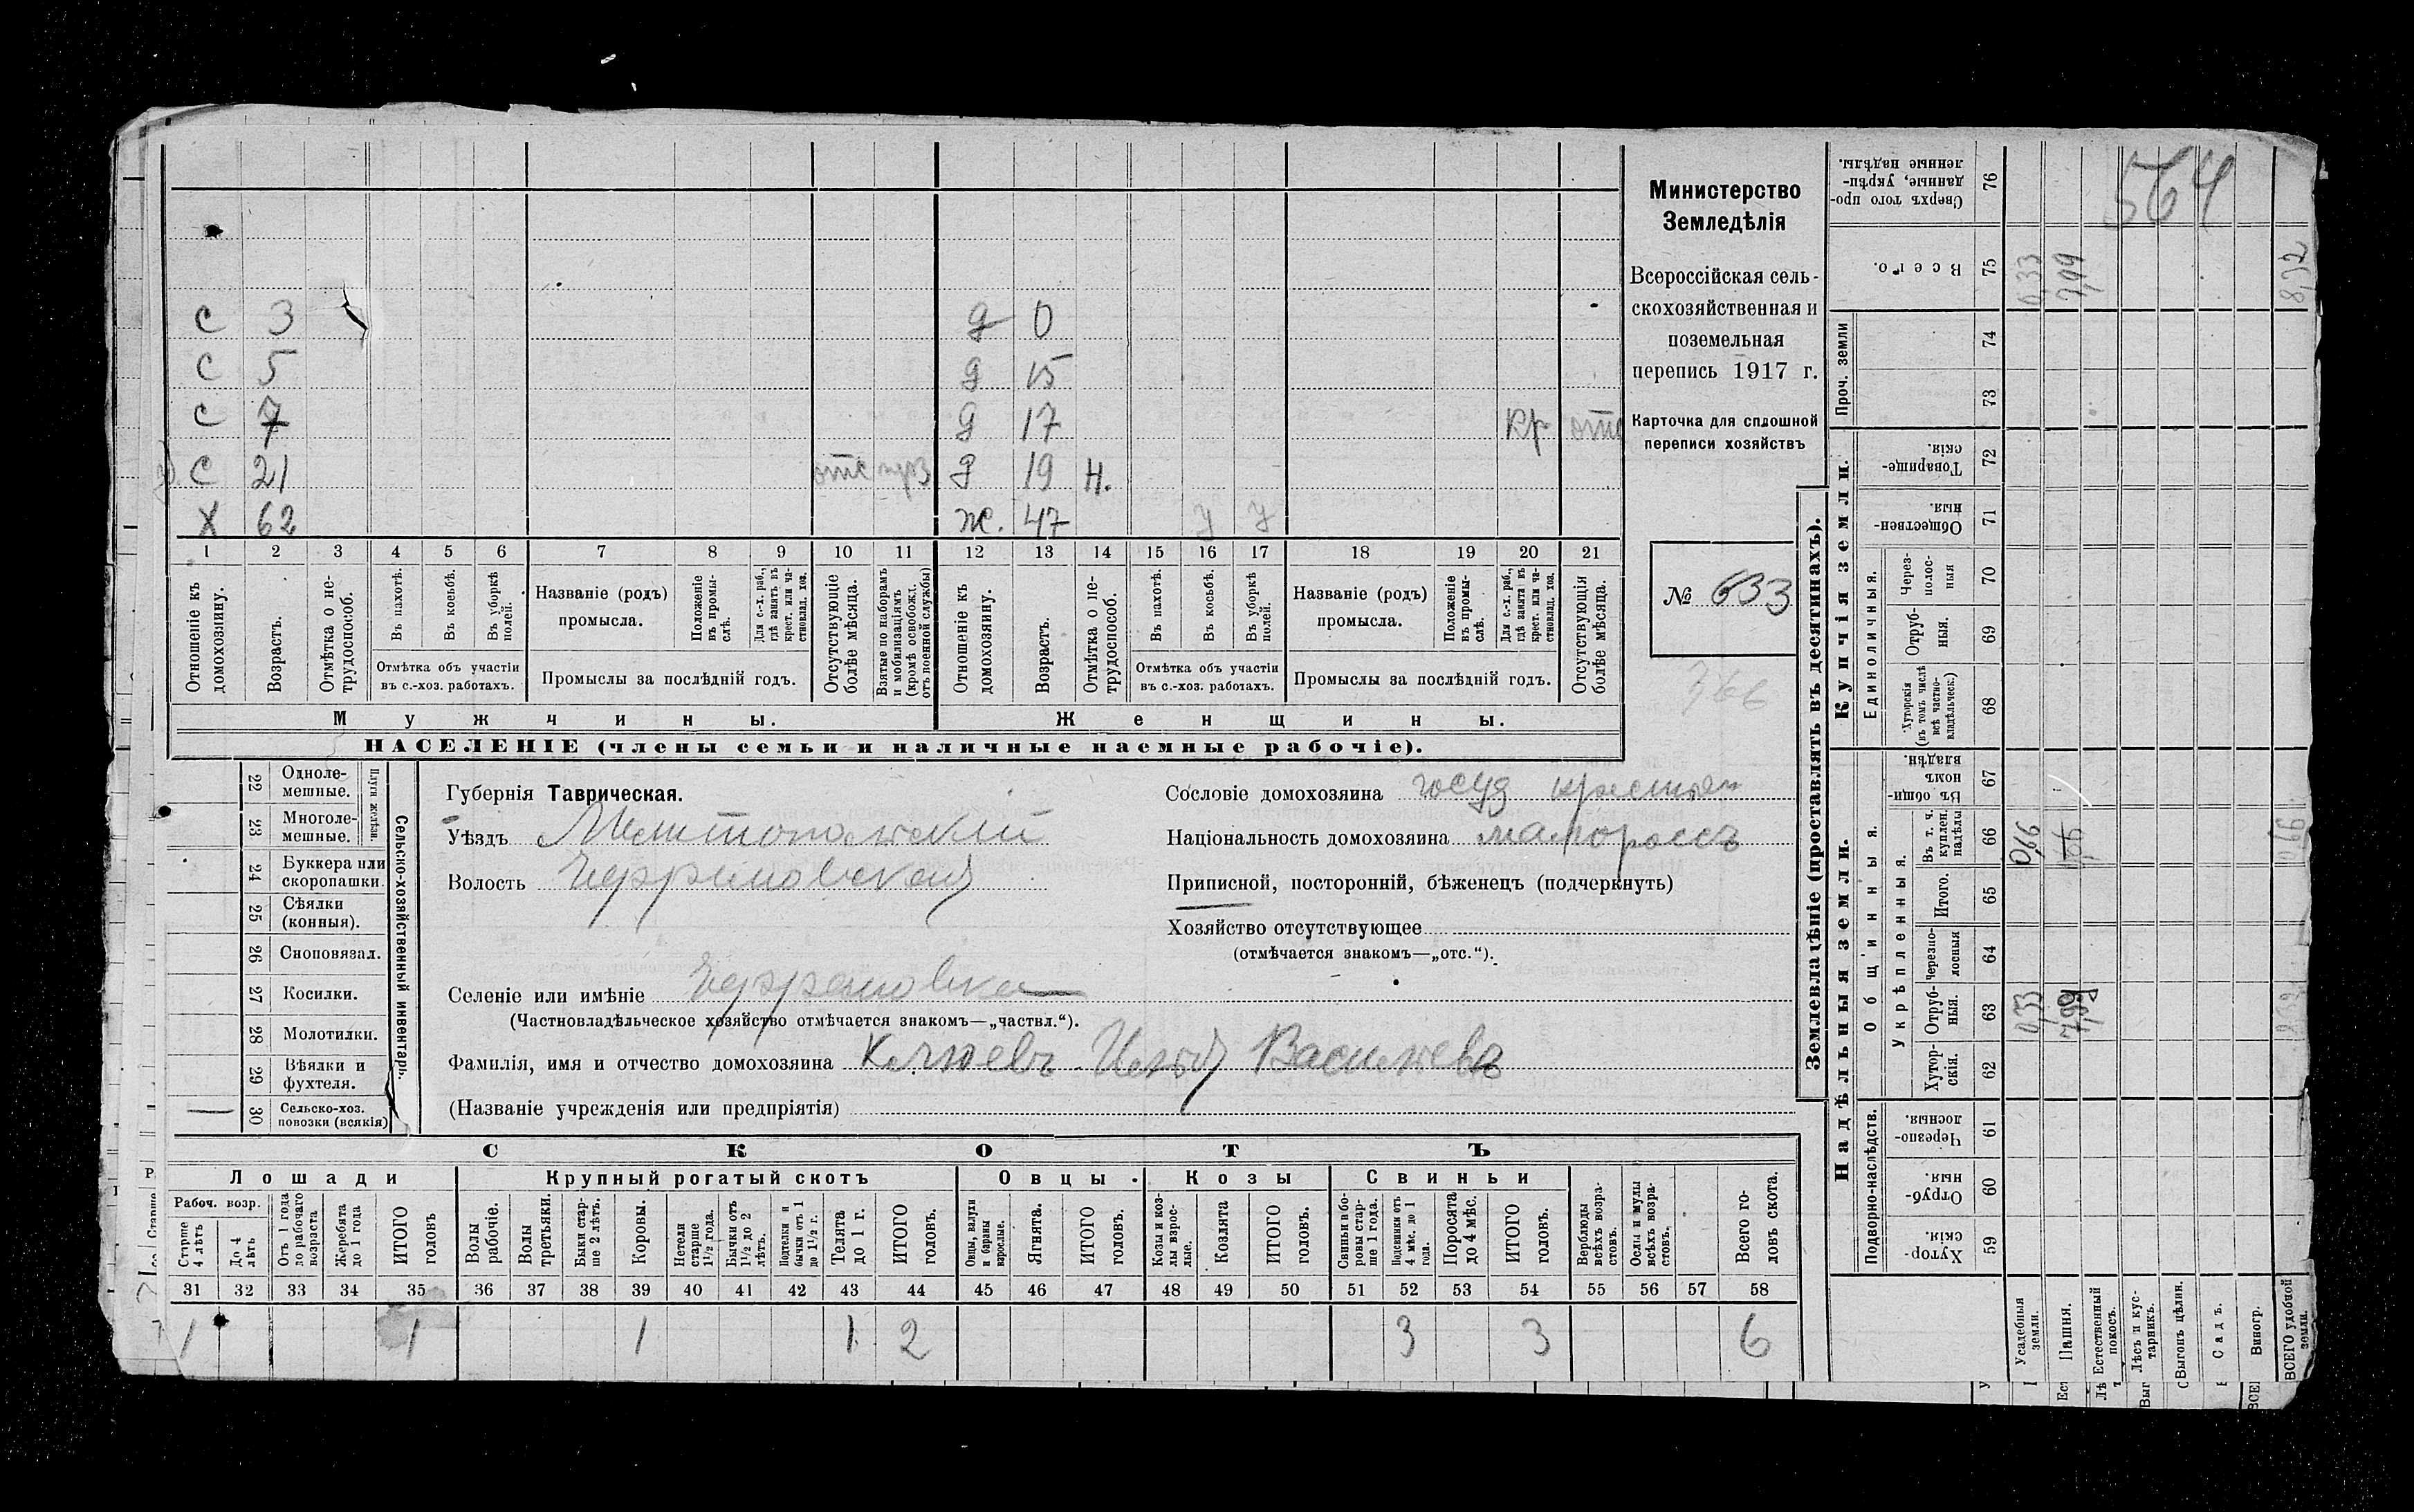 С 3 д 0
С 5 д 15
С 7 д 17 кр отс
С 21 отс д 19 н.
Х 62 ж. 47 у у
1 2 3 4 5 6 7 8 9 10 11 12 13 14 15 16 17 18 19 20 21
Отношеніе къ домохозяину.
Возрастъ.
Отмѣтка о не-трудоспособ.
Въ пахотѣ.
Въ косьбѣ.
Въ уборкѣ полей.
Отмѣтка объ участіи
въ с.-хоз. работахъ.
Названіе (родъ)
промысла.
Положеніе въ промы-слѣ.
Для с.-х. раб., гдѣ занятъ въ крест. или ча-стновлад. хоз.
Промыслы за послѣдній годъ.
Отсутствующіе болѣе мѣсяца.
Взятые по наборамъ и мобилизаціямъ (кромѣ освобожд. отъ военной службы)
Отношеніе къ домохозяину.
Возрастъ.
Отмѣтка о не-трудоспособ.
Въ пахотѣ.
Въ косьбѣ.
Въ уборкѣ полей.
Отмѣтка объ участіи
въ с.-хоз. работахъ.
Названіе (родъ)
промысла.
Положеніе въ промы-слѣ.
Для с.-х. раб., гдѣ занята въ крест. или ча-стновлад. хоз.
Промыслы за послѣдній годъ.
Отсутствующія болѣе мѣсяца.
Мужчины. Женщины.
НАСЕЛЕНІЕ (члены семьи и наличные наемные рабочіе).
Министерство
Земледѣлія
Всероссійская сель-
скохозяйственная и
поземельная
перепись 1917 г.
Карточка для сплошной
переписи хозяйствъ
№ 633
366
22 Одноле-мешные.
23 Многоле-мешные.
Плуги желѣзн.
24 Буккера или скоропашки.
25 Сѣялки (конныя).
26 Сноповязал.
27 Косилки.
28 Молотилки.
29 Вѣялки и фухтеля.
30 Сельско-хоз. повозки (всякія) —
Сельско-хозяйственный инвентарь.
Губернія Таврическая.
Уѣздъ Мелитопольскій
Волость Ефремовская
Селеніе или имѣніе Ефремовка
(Частновладѣльческое хозяйство отмѣчается знакомъ—„частвл.“).
Фамилія, имя и отчество домохозяина Клюевъ Илья Васильевъ
(Названіе учрежденія или предпріятія)
Сословіе домохозяина госуд крестьян
Національность домохозяина малороссъ
Приписной, посторонній, бѣженецъ (подчеркнуть)
Хозяйство отсутствующее
(отмѣчается знакомъ—„отс.“).
СКОТЪ
Лошади Крупный рогатый скотъ Овцы. Козы Свиньи
Рабоч. возр.
Старше 4 лѣтъ
До 4 лѣтъ
Отъ 1 года до рабочаго возраста
Жеребята до 1 года
ИТОГО головъ
Волы рабочіе.
Волы третьяки.
Быки стар-ше 2 лѣтъ.
Коровы.
Нетели старше 1½ года.
Бычки отъ 1½ до 2 лѣтъ.
Подтелки и бычки отъ 1 до 1½ г.
Телята до 1 г.
ИТОГО головъ.
Овцы, валухи и бараны взрослые.
Ягнята.
ИТОГО головъ.
Козы и коз-лы взрос-лые.
Козлята
ИТОГО головъ.
Свиньи и бо-ровы стар-ше 1 года.
Подсвинки отъ 4 мѣс. до 1 года.
Поросята до 4 мѣс.
ИТОГО головъ.
Верблюды всѣхъ возра-стовъ.
Ослы и мулы всѣхъ возра-стовъ.
Всего го-ловъ скота.
31 32 33 34 35 36 37 38 39 40 41 42 43 44 45 46 47 48 49 50 51 52 53 54 55 56 57 58
1 1 1 1 2 3 3 6
Землевладѣніе (проставлять въ десятинахъ).
564
Сверхъ того про-данные, укрѣп-ленные надѣлы. 76
Всего. 75 0,33 7,99 8,32
Проч. земли 74 73
Купчія земли.
Товарище-скія 72
Обществен-ныя. 71
Единоличныя.
Через-полос-ныя 70
Отруб-ныя. 69
Хуторскія (въ томъ числѣ всѣ частно-владѣльческ.) 68
Надѣльныя земли.
Общинныя.
Въ общин-номъ владѣн. 67
Укрѣпленныя.
Въ т. ч. куплен. надѣлы 66 0,66
Итого. 65
Черезпо-лосныя 64
Отруб-ныя. 63 0,33 7,99 8,32
Хутор-скія. 62
Подворно-наслѣдств.
Черезпо-лосныя. 61
Отруб-ныя. 60
Хутор-скія. 59
Усадебныя земли.
Пашня.
Естественный покосъ.
Лѣсъ и кус-тарникъ.
Выгонъ цѣлин.
Садъ.
Виногр.
ВСЕГО удобной земли.